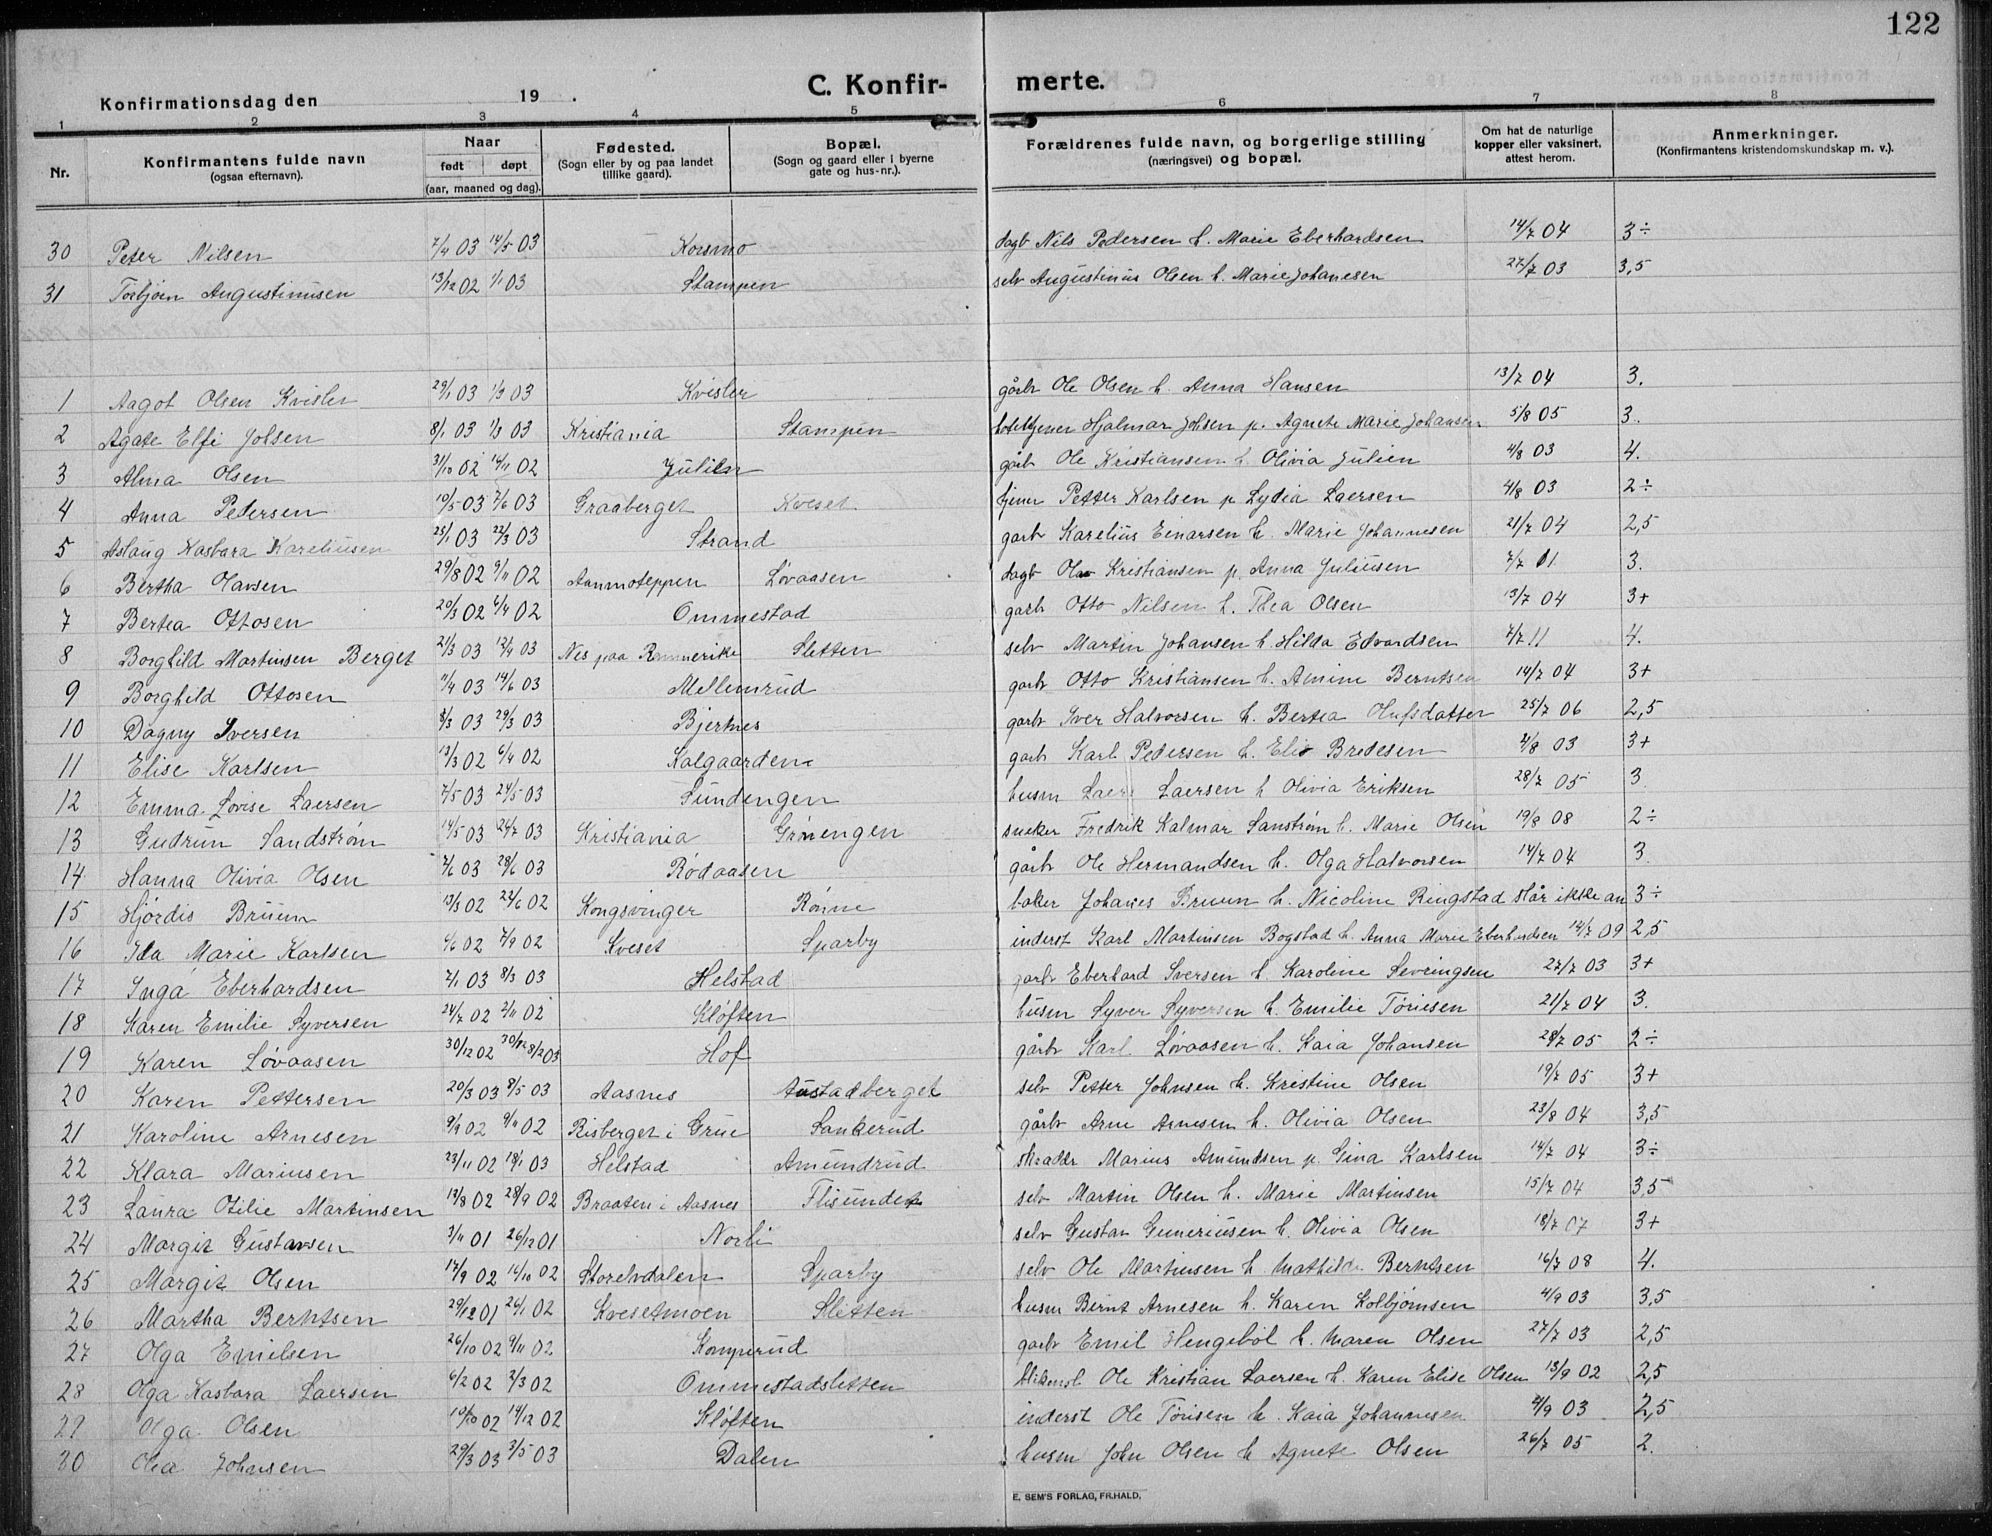 122
C. Konfir- merte.
Konfirmationsdag den 19 .
1 2 3 4 5 6 7 8
Nr. Konfirmantens fulde navn (ogsaa efternavn). Naar født døpt (aar, maaned og dag). Fødested. (Sogn eller by og paa landet tillike gaard). Bopæl. (Sogn og gaard eller i byerne gate og hus-nr.). Forældrenes fulde navn, og borgerlige stilling (næringsvei) og bopæl. Om hat de naturlige kopper eller vaksinert, attest herom. Anmerkninger. (Konfirmantens kristendomskundskap m. v.).
30 Peter Nilsen 7/4 03 14/5 03 Kousmo dagb Nils Pedersen h. Marie Eberhardsen 14/7 04 3÷
31 Torbjøen Augustinusen 13/12 02 1/1 03 Stampen selv Augustinus Olsen h. Marie Johanesen 27/7 03 3,5
1 Aagot Olsen Kvisler 29/1 03 1/3 03 Kvisler gårb Ole Olsen h. Anna Hansen 13/7 04 3.
2 Agate Elfi Johsen 8/1 03 1/3 03 Kristiania Stampen Hjalmar Johsen p. Agnete Marie Johansen 5/8 05 3.
3 Alma Olsen 31/10 02 16/11 02 Julien gårb Ole Kristiansen h. Olivia Julien 4/8 03 4.
4 Anna Pedersen 10/5 03 7/6 03 Graaberget Kveset tjener Petter Karlsen p Lydia Laersen 4/8 03 2÷
5 Aslaug Kasbara Kareliusen 25/1 03 22/3 03 Strand garb Karelius Einarsen h. Marie Johannesen 21/7 04 2,5
6 Bertha Olavsen 29/8 02 9/11 02 Aanmoteppen Løvaasen dagb Olav Kristiansen p. Anna Juliusen 7/7 01 3.
7 Bertea Ottosen 20/3 02 6/4 02 Ommestad garb Otto Nilsen h. Thea Olsen 13/7 04 3+
8 Borghild Martinsen Berget 21/3 03 12/4 03 Nes paa Romerike Sletten selv Martin Johansen h Hilda Edvardsen 7/7 11 4.
9 Borghild Ottosen 11/4 03 14/6 03 Mellemrud garb Otto Kristiansen h. Amine Berntsen 14/7 04 3+
10 Dagny Iversen 8/3 03 29/3 03 Bjerknes garb Iver Halvorsen h. Bertea Olufsdatter 25/7 06 2,5
11 Elise Karlsen 13/3 02 6/4 02 Kalgaarden garb Karl Pedersen h. Elis Bredesen 4/8 03 3+
12 Emma Lovise Laersen 7/5 03 24/5 03 Sundengen husm Laers Laersen h Olivia Eriksen 28/7 05 3
13 Gudrun Sandstrøm 14/5 03 26/7 03 Kristiania Grønengen sneker Fredrik Kalmar Sanstrøm h. Marie Olsen 19/8 08 2÷
14 Hanna Olivia Olsen 7/6 03 28/6 03 Rødaasen gårb Ole Hermandsen h. Olga Halvorsen 14/7 04 3.
15 Hjørdis Bruun 13/3 02 22/6 02 Kongsvinger Rønne baker Johanes Bruun h. Nicoline Ringstad står ikke an 3÷
16 Ida Marie Karlsen 6/6 02 7/9 02 Kveset Sparby inderst Karl Martinsen Bogstad h. Anna Marie Eberhardsen 14/7 09 2,5
17 Inga Eberhardsen 2/1 03 8/3 03 Helstad garb Eberhard Iversen h. Karoline Sevringsen 27/7 03 3+
18 Karen Emilie Syversen 24/7 02 2/11 02 Kløften husm Syver Syversen h. Emilie Tørisen 21/7 04 3.
19 Karen Løvaasen 30/12 02 30/12 8/2 03 Hof gårb Karl Løvaasen h. Kaia Johansen 28/7 05 2÷
20 Karen Pettersen 20/3 03 8/5 03 Aasnes Austadberget selv Petter Johnsen h. Kristine Olsen 19/7 05 3+
21 Karoline Arnesen 9/9 02 9/11 02 Risberget i Grue Sankerud gårb Arne Arnesen h. Olivia Olsen 23/8 04 3,5
22 Klara Mariusen 23/11 02 18/1 03 Helstad Amundrud skradder Marius Amundsen p. Gina Karlsen 14/7 04 3÷
23 Laura Otilie Martinsen 13/8 02 28/9 02 Braaten i Aasnes Flisundet selv Martin Olsen h. Marie Martinsen 15/7 04 3,5
24 Margit Gustavsen 3/11 01 26/12 01 Norli selv Gustav Guneriusen h. Olivia Olsen 18/7 07 3+
25 Margit Olsen 17/9 02 14/10 02 Storelvdalen Sparby selv Ole Martinsen h Mathilde Berntsen 16/7 08 4.
26 Martha Berntsen 29/12 01 26/1 02 Kvesetmoen Sletten husm Bernt Arnesen h. Karen Kolbjørnsen 4/9 03 3,5
27 Olga Emilsen 26/10 02 9/11 02 Komperud garb Emil Hengebøl h. Maren Olsen 27/7 03 2,5
28 Olga Kasbara Laersen 6/2 02 2/3 02 Ommestadsletten Ole Kristian Laersen h. Karen Elise Olsen 13/9 02 2,5
29 Olga Olsen 10/10 02 14/12 02 Kløften inderst Ole Tørisen h. Kaia Johannesen 4/9 03 2,5
30 Olea Johnsen 29/3 03 3/5 03 Dalen husm John Olsen h Agnete Olsen 26/7 05 2.
E. SEM'S FORLAG, FR.HALD.